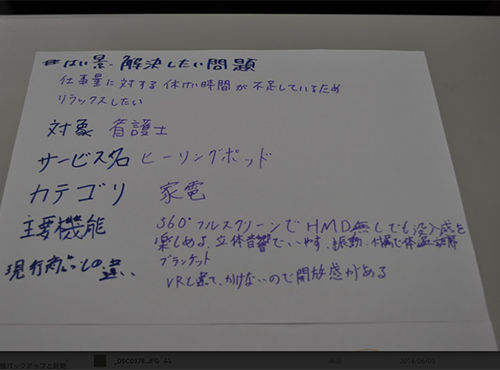 はい景・解決したい問題
仕事量に対する休けい時間が不足しているため
リラックスしたい
対象 看護士
サービス名 ヒーリングポッド
カテゴリ 家電
主要機能 360°フルスクリーンでHMD無しでも没入感を
楽しめる、立体音響でいやす、振動、
ブランケット
現行商品との違い VRと違って、かけないので開放感がある
_DSC0378.JPG